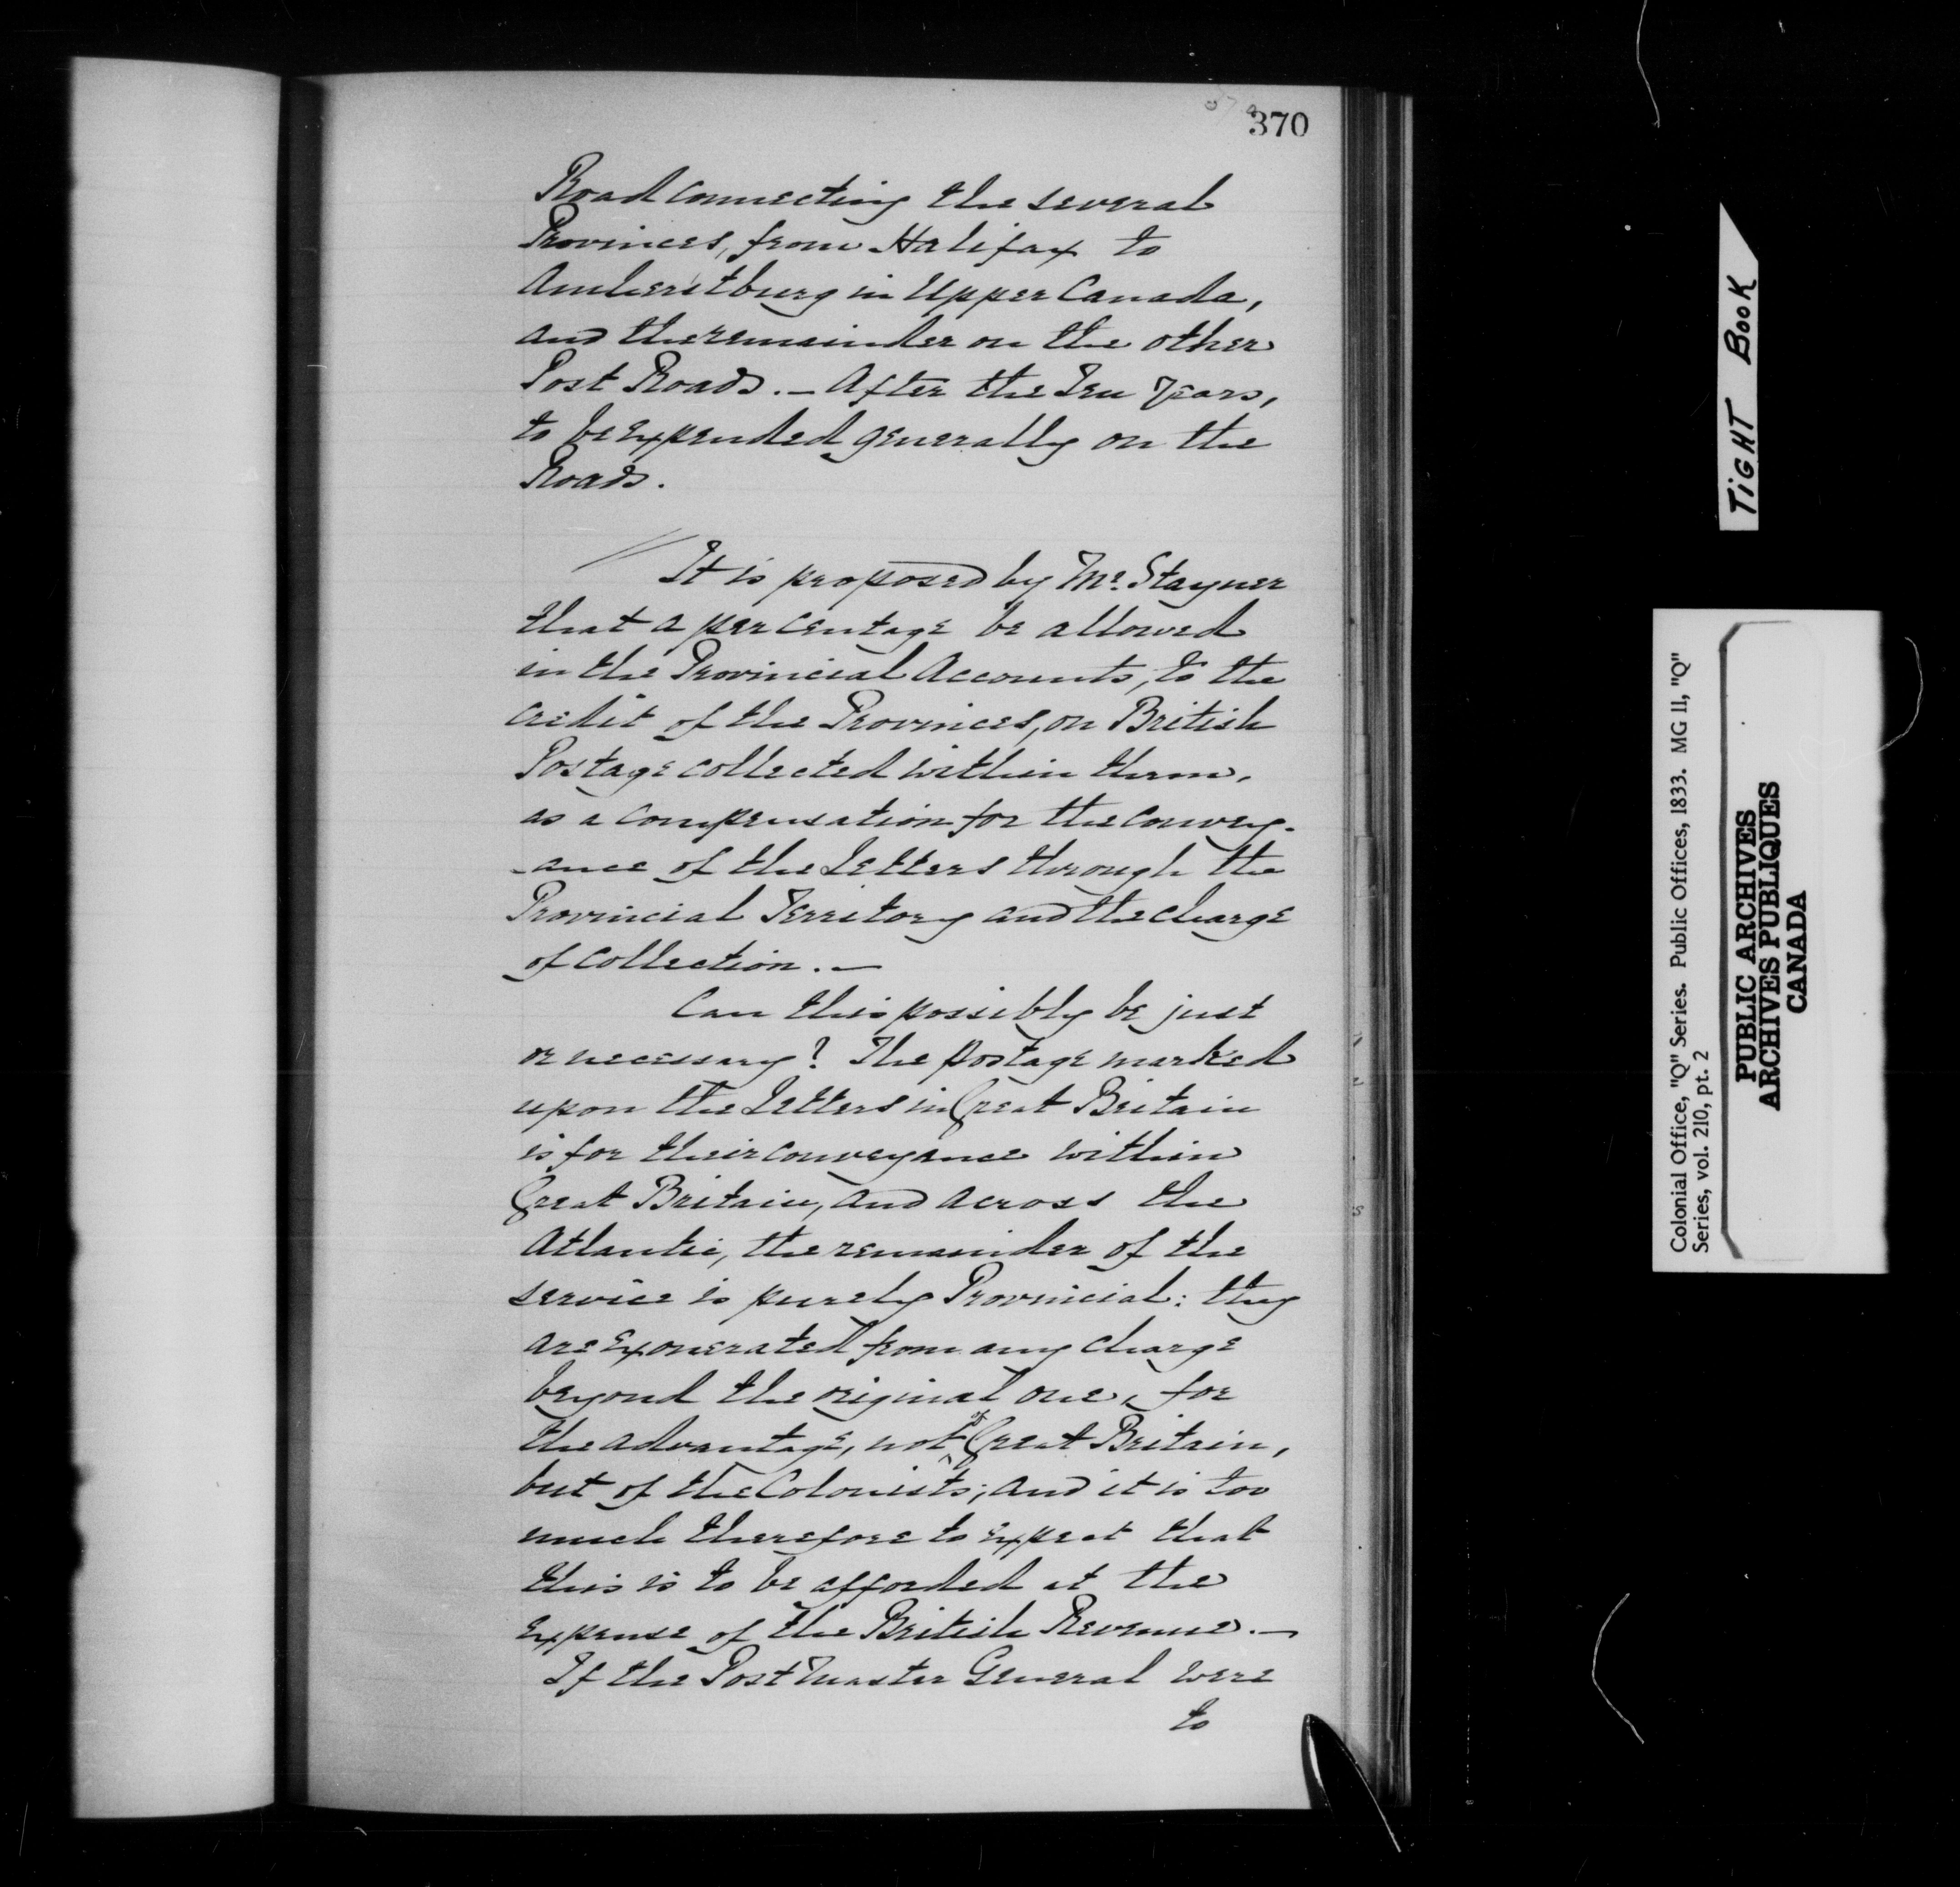 370
Road connecting the several
Provinces, from Halifax to
Amherstburg in Upper Canada,
and the remainder on the other
Post Roads. — After the Ten Years,
to be expended generally on the
Roads.
It is proposed by Mr. Stayner
that a per centage be allowed
in the Provincial Accounts, to the
credit of the Provinces, on British
Postage collected within them,
as a compensation for the convey-
-ance of the Letters through the
Provincial Territory and the charge
of collection. —
Can this possibly be just
or necessary? The postage marked
upon the Letters in Great Britain
is for their conveyance within
Great Britain, and across the
Atlantic, the remainder of the
service is purely Provincial: they
are exonerated from any charge
beyond the original one, for
the advantage, not of Great Britain,
but of the Colonists; and it is too
much therefore to expect that
this is to be afforded at the
expense of the British Revenue. —
If the Post Master General were
to
TiGHT BOOK
Colonial Office, "Q" Series. Public Offices, 1833. MG 11, "Q"
Series, vol. 210, pt. 2
PUBLIC ARCHIVES
ARCHIVES PUBLIQUES
CANADA